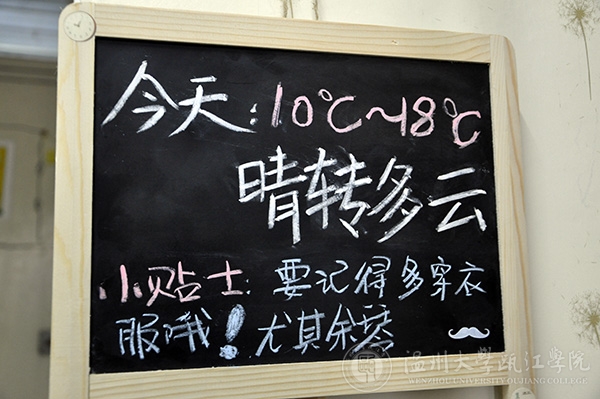 今天:10℃~18℃
晴转多云
小贴士:要记得多穿衣
服哦!尤其余
温州大学瓯江学院
WENZHOU UNIVERSITY OUJIANG COLLEGE